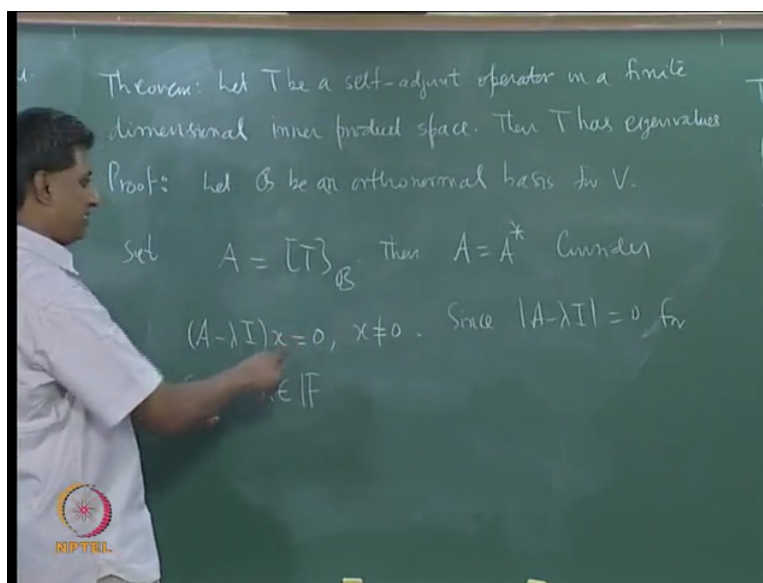 Theorem: Let T be a self-adjoint operator on a finite
dimensional inner product space. Then T has eigenvalues
Proof: Let B be an orthonormal basis for V.
Set A = [T]_B. Then A = A* Consider
(A-λI)x=0, x≠0. Since |A-λI|=0 for
∈ F
NPTEL